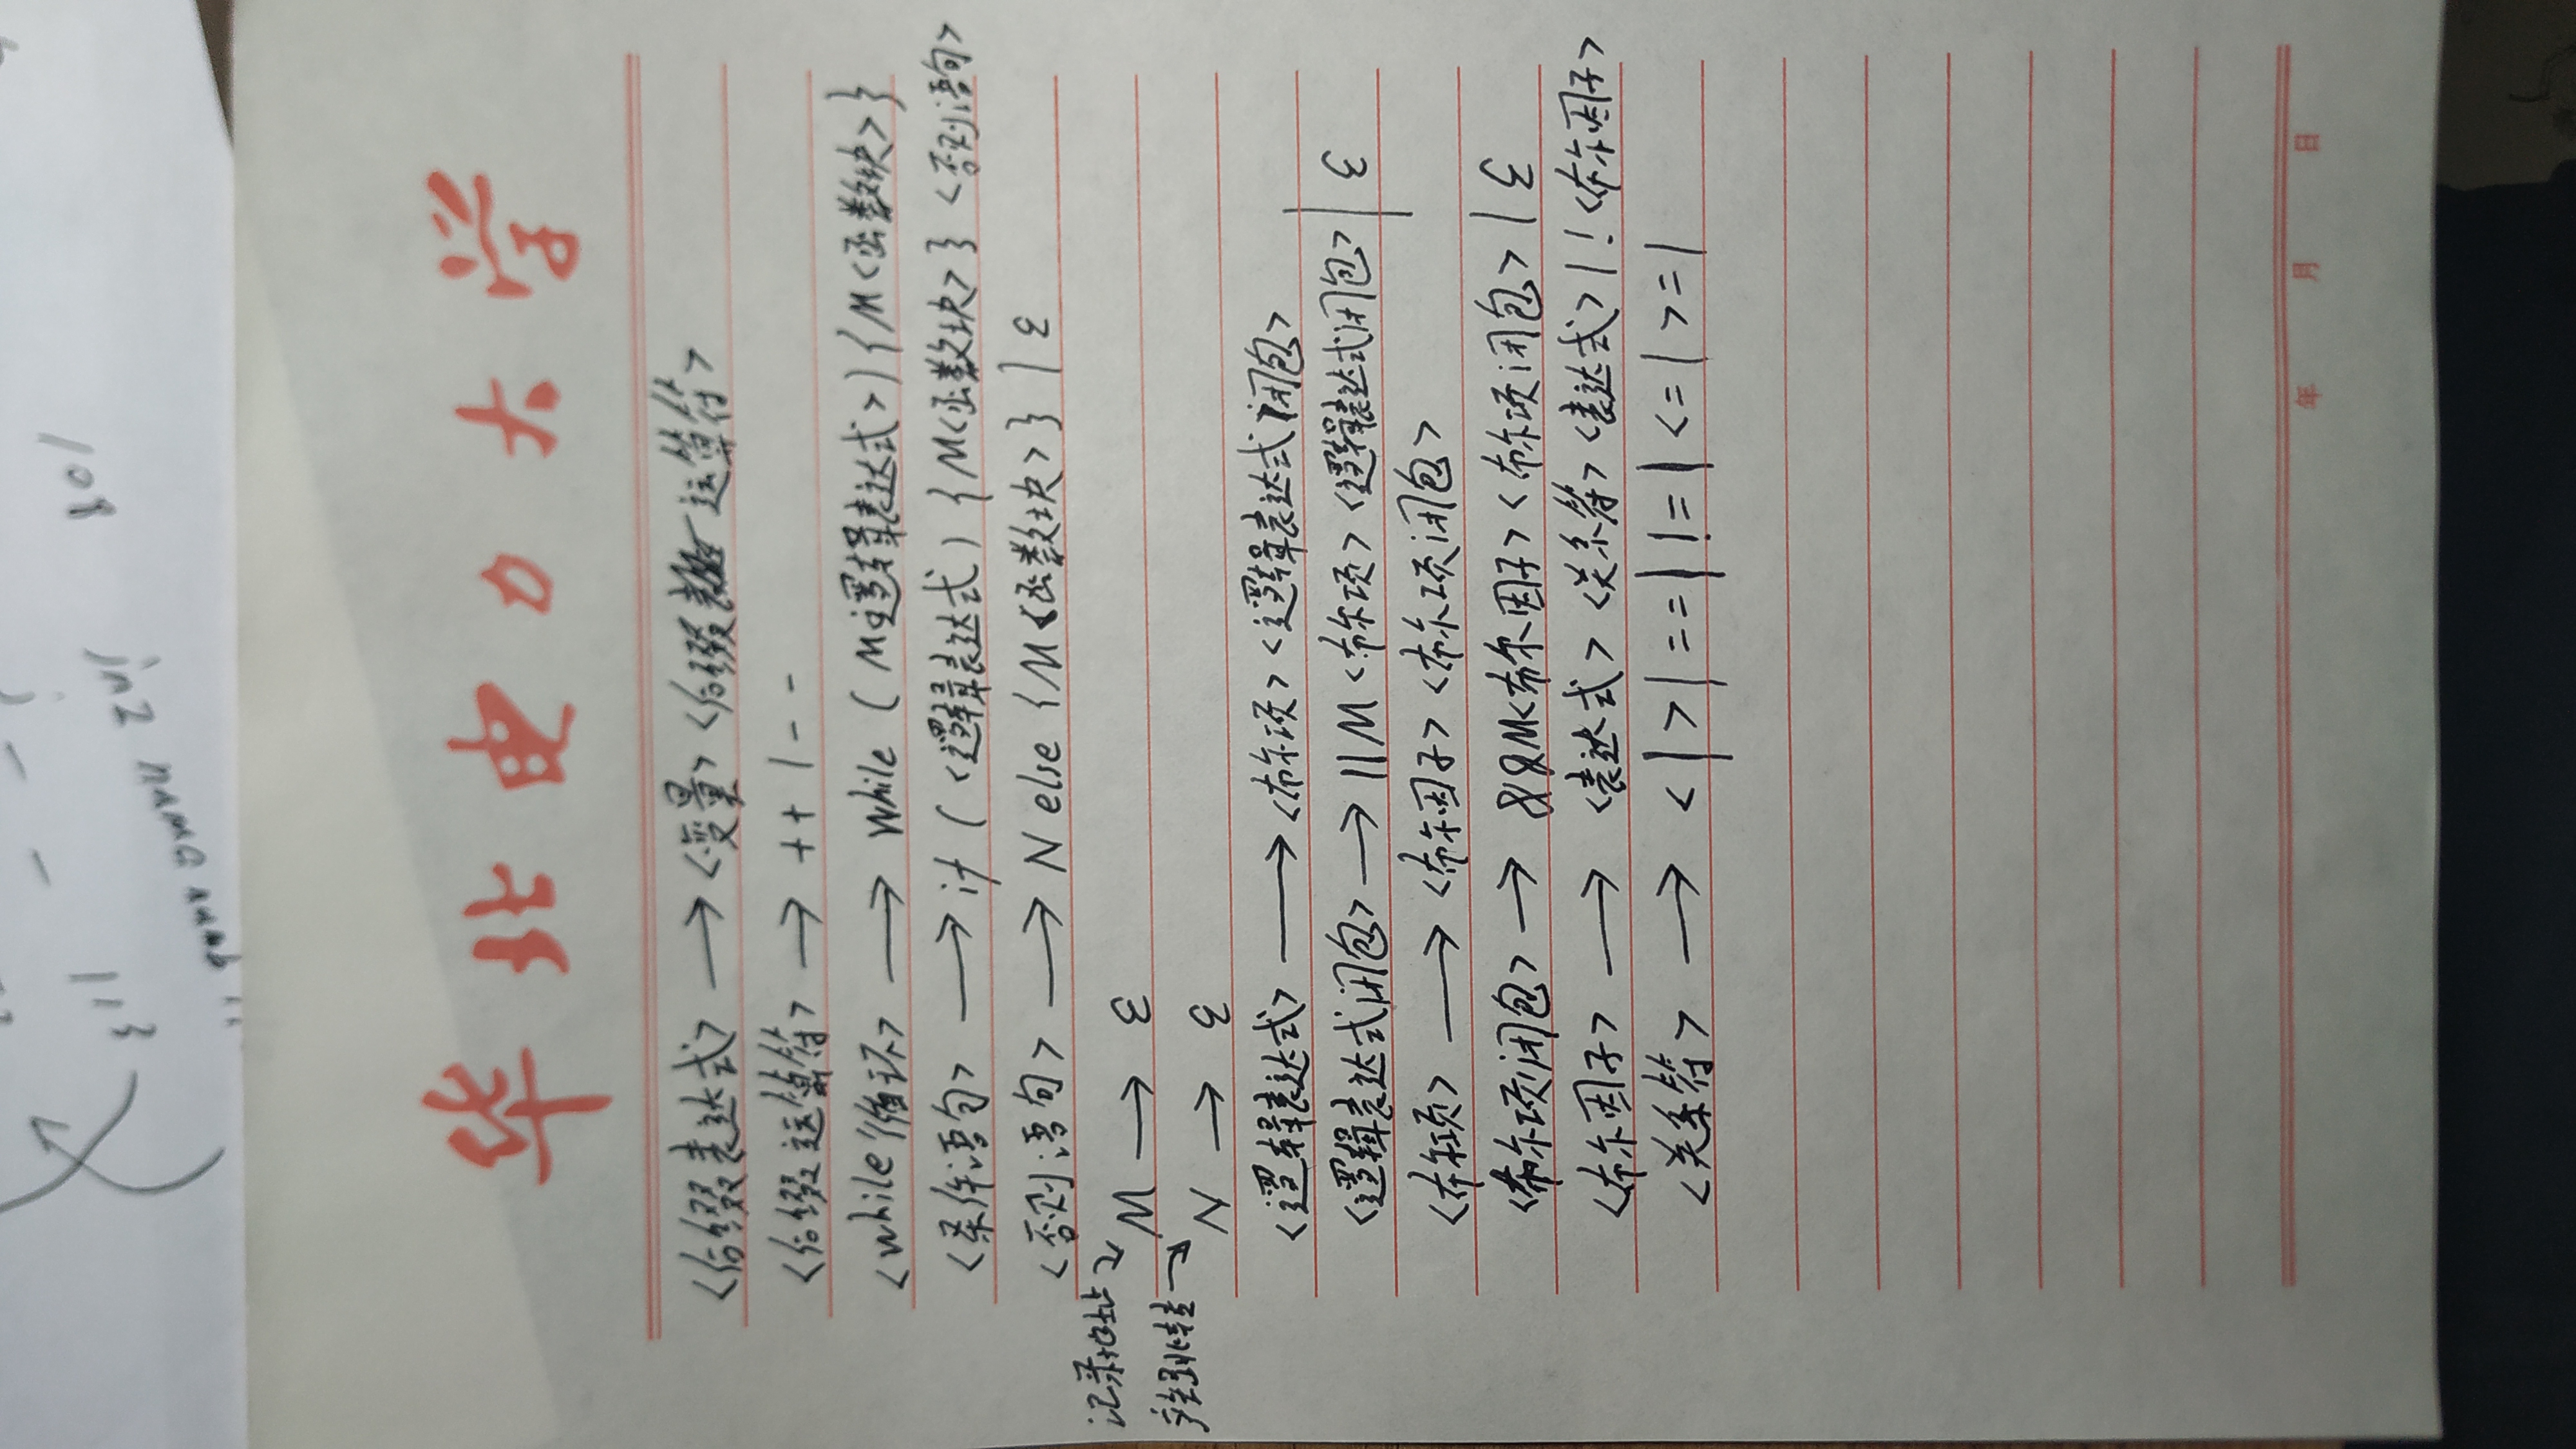 108
113
int2
华北电力大学
<后缀表达式> → <变量> <后缀运算符>
<后缀运算符> → ++ | --
<while循环> → while ( M逻辑表达式>) {M<函数块>}
<条件语句> → if ( <逻辑表达式) {M<函数块>} <否则语句>
<否则语句> → N else {M<函数块>} | ε
记录地址
M → ε
产生跳转 →
N → ε
<逻辑表达式> → <布尔项> <逻辑表达式闭包>
<逻辑表达式闭包> → || M <布尔项> <逻辑表达式闭包> | ε
<布尔项> → <布尔因子> <布尔项闭包>
<布尔项闭包> → &&M<布尔因子> <布尔项闭包> | ε
<布尔因子> → <表达式> <关系符> <表达式> | ! <布尔因子>
<关系符> → < | > | == | != | <= | >= |
年 月 日